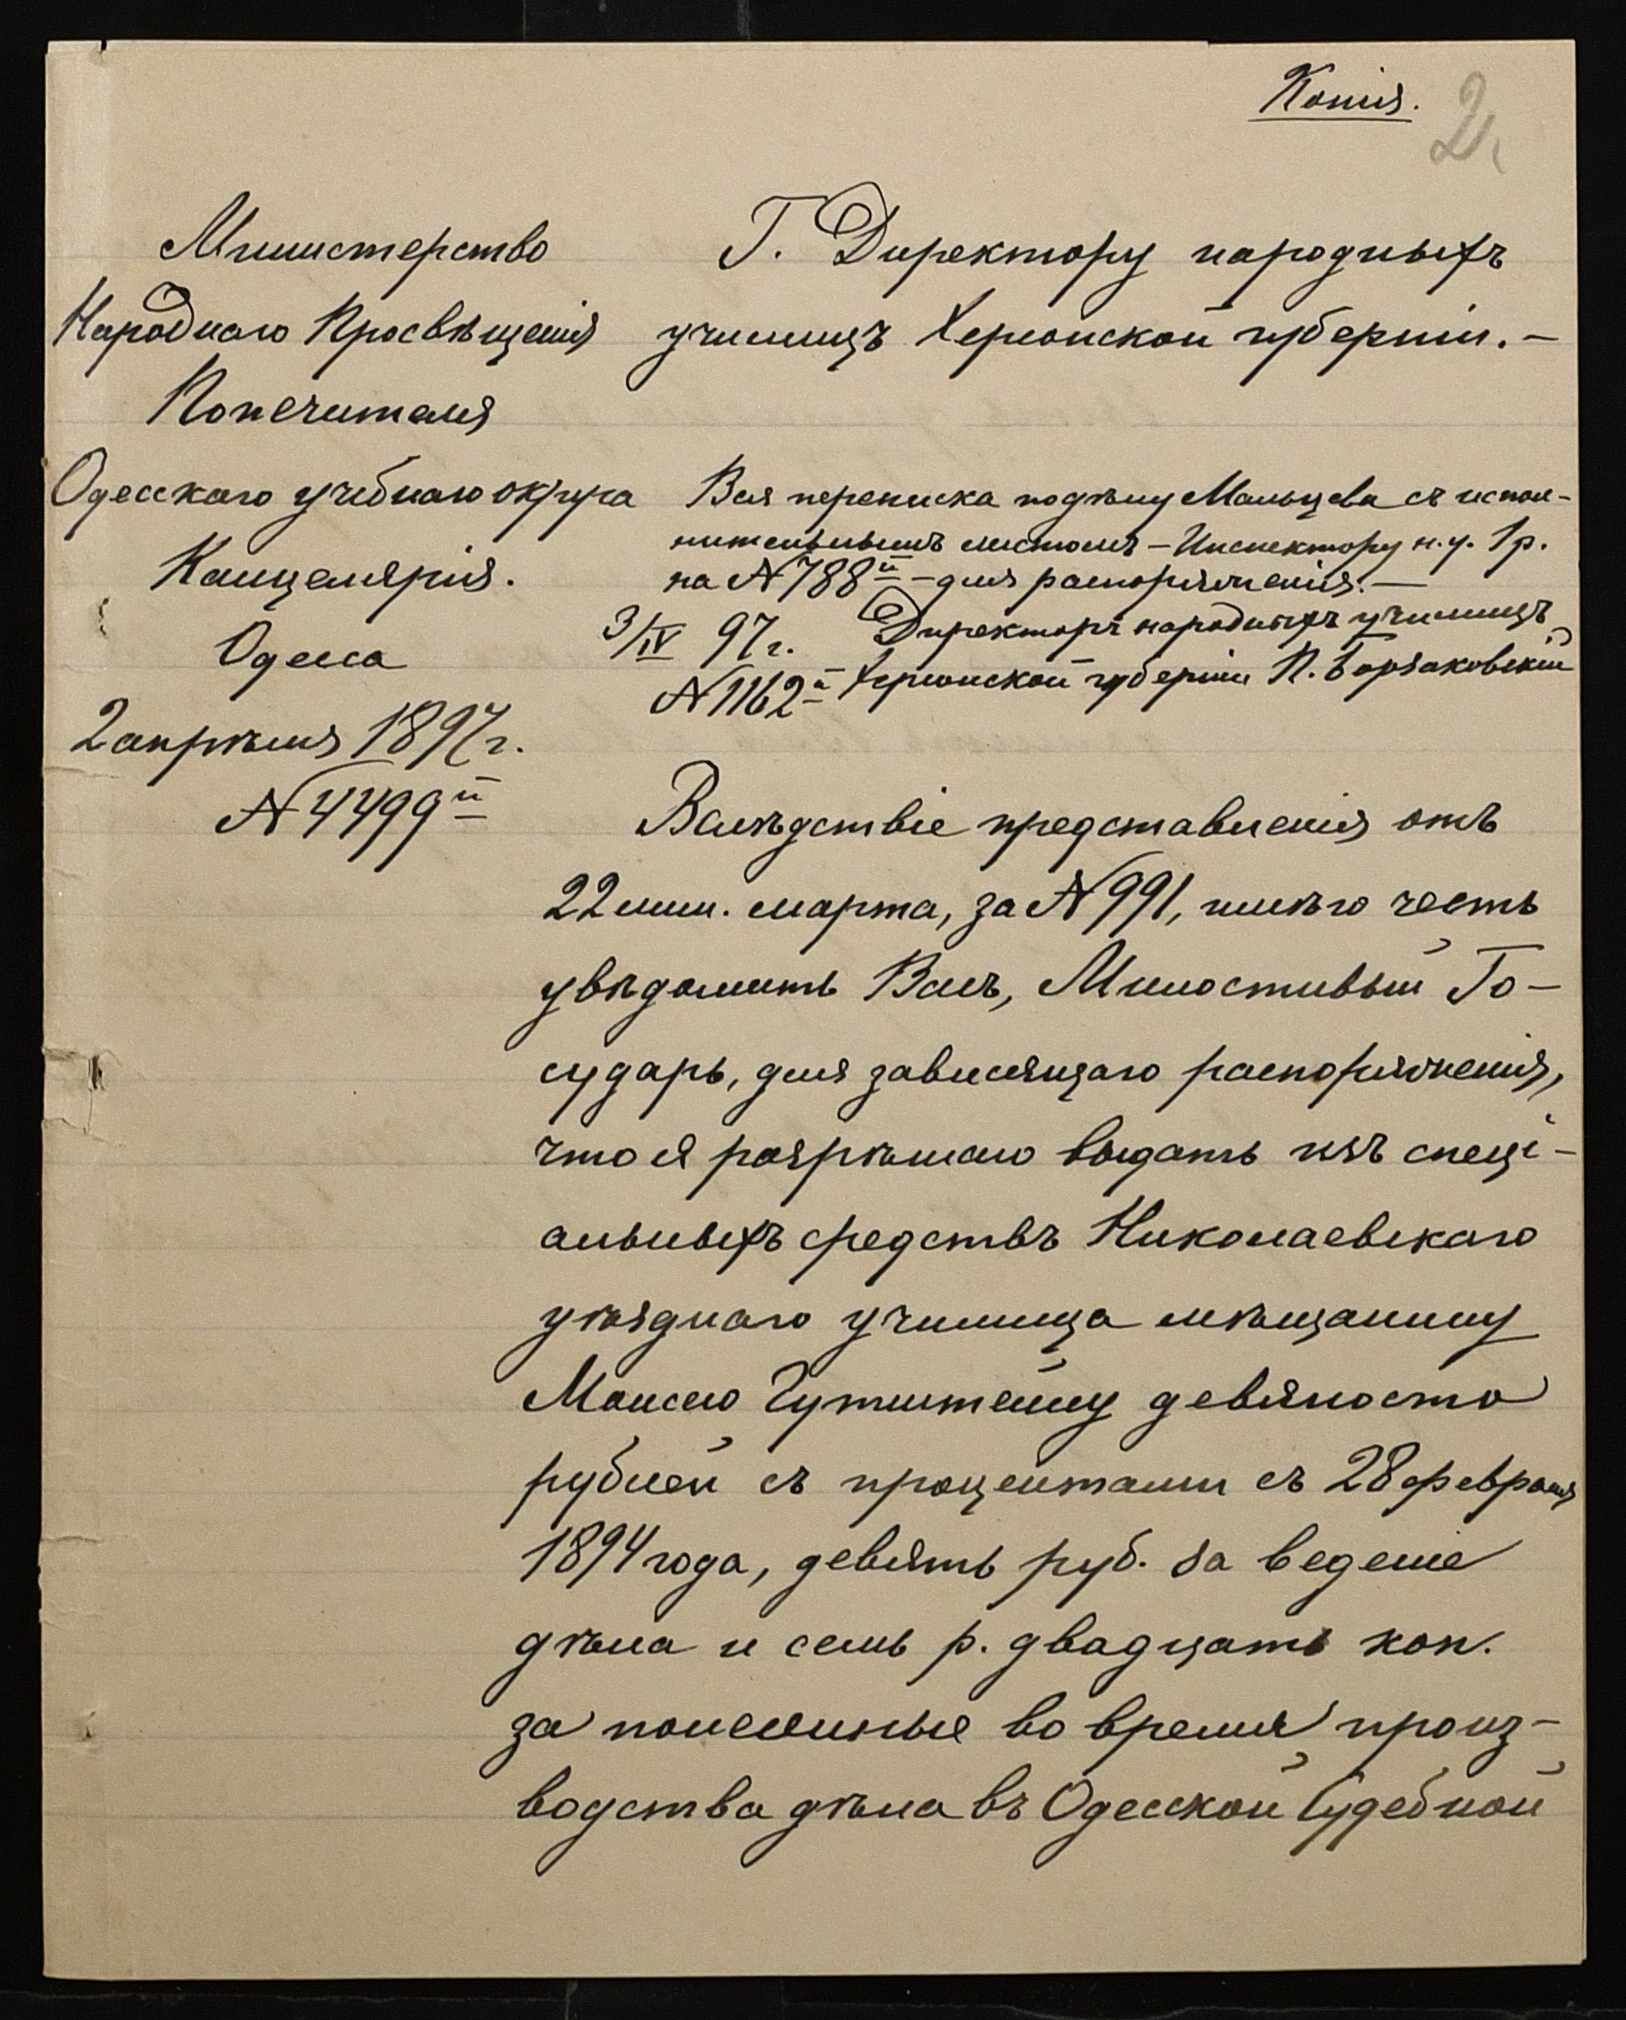 Копія.
2
Министерство
Народнаго Просвѣщенія
Попечителя
Одесскаго учебнаго округа
Канцелярія.
Одесса
2 апрѣля 1897 г.
№ 4499й
Г. Директору народныхъ
училищъ Херсонской губерніи. —
Вся переписка по дѣлу Мальцева съ испол-
нительнымъ листомъ — Инспектору н. у. 1 р.
на № 788й — для распоряженія. —
3/IV 97 г. Директоръ народныхъ училищъ
№ 1162й Херсонской губерніи П. Борзаковскій
Вслѣдствіе представленія отъ
22 мин. марта, за № 991, имѣю честь
увѣдомить Васъ, Милостивый Го-
сударь, для зависящаго распоряженія,
что я разрѣшаю выдать изъ спеці-
альныхъ средствъ Николаевскаго
уѣзднаго училища мѣщанину
Моисею Гутштейну девяносто
рублей съ процентами съ 28 февраля
1894 года, девять руб. за веденіе
дѣла и семь р. двадцать коп.
за понесенные во время произ-
водства дѣла въ Одесской Судебной